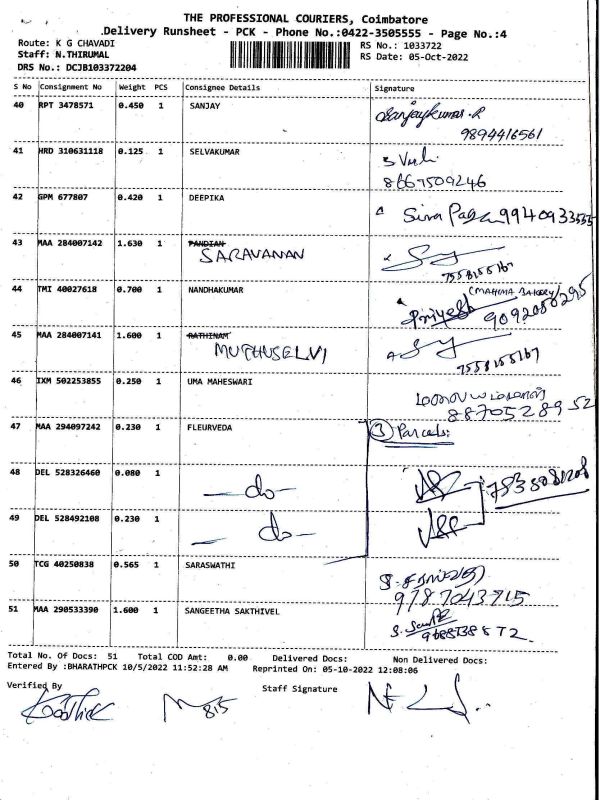 THE PROFESSIONAL COURIERS, Coimbatore
Delivery Runsheet - PCK - Phone No.:0422-3505555 - Page No.:4
Route: K G CHAVADI
RS No.: 1033722
Staff: N.THIRUMAL
RS Date: 05-Oct-2022
DRS No.: DCJB103372204
S No Consignment No Weight PCS Consignee Details Signature
40 RPT 3478571 0.450 1 SANJAY Sanjaykumar.R
9894416561
41 HRD 310631118 0.125 1 SELVAKUMAR
8667509246
42 GPM 677807 0.420 1 DEEPIKA 9940933555
43 MAA 284007142 1.630 1 PANDIAN
SARAVANAN
7558155167
44 TMI 40027618 0.700 1 NANDHAKUMAR (MAHIMA BAKERY)
Priyesh 9092050295
45 MAA 284007141 1.600 1 RATHINAM
MUTHUSELVI
7558155167
46 IXM 502253855 0.250 1 UMA MAHESWARI
8870528952
47 MAA 294097242 0.230 1 FLEURVEDA 3 Parcels:
48 DEL 528326460 0.080 1 -do-
49 DEL 528492108 0.230 1 -do-
50 TCG 40250838 0.565 1 SARASWATHI
9787043715
51 MAA 290533390 1.600 1 SANGEETHA SAKTHIVEL
Total No. Of Docs: 51 Total COD Amt: 0.00 Delivered Docs: Non Delivered Docs:
Entered By :BHARATHPCK 10/5/2022 11:52:28 AM Reprinted On: 05-10-2022 12:08:06
Verified By Staff Signature
815